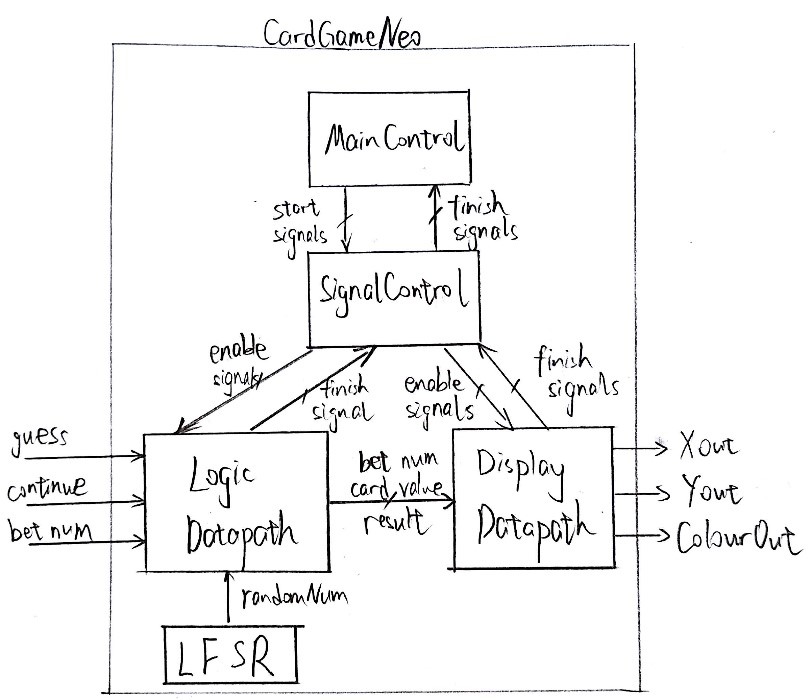 CardGameNeo
MainControl
start
signals
finish
signals
SignalControl
enable
signals
finish
signal
enable
signals
finish
signals
guess
continue
bet num
Logic
Datapath
bet num
card value
result
Display
Datapath
Xout
Yout
ColourOut
randomNum
LFSR